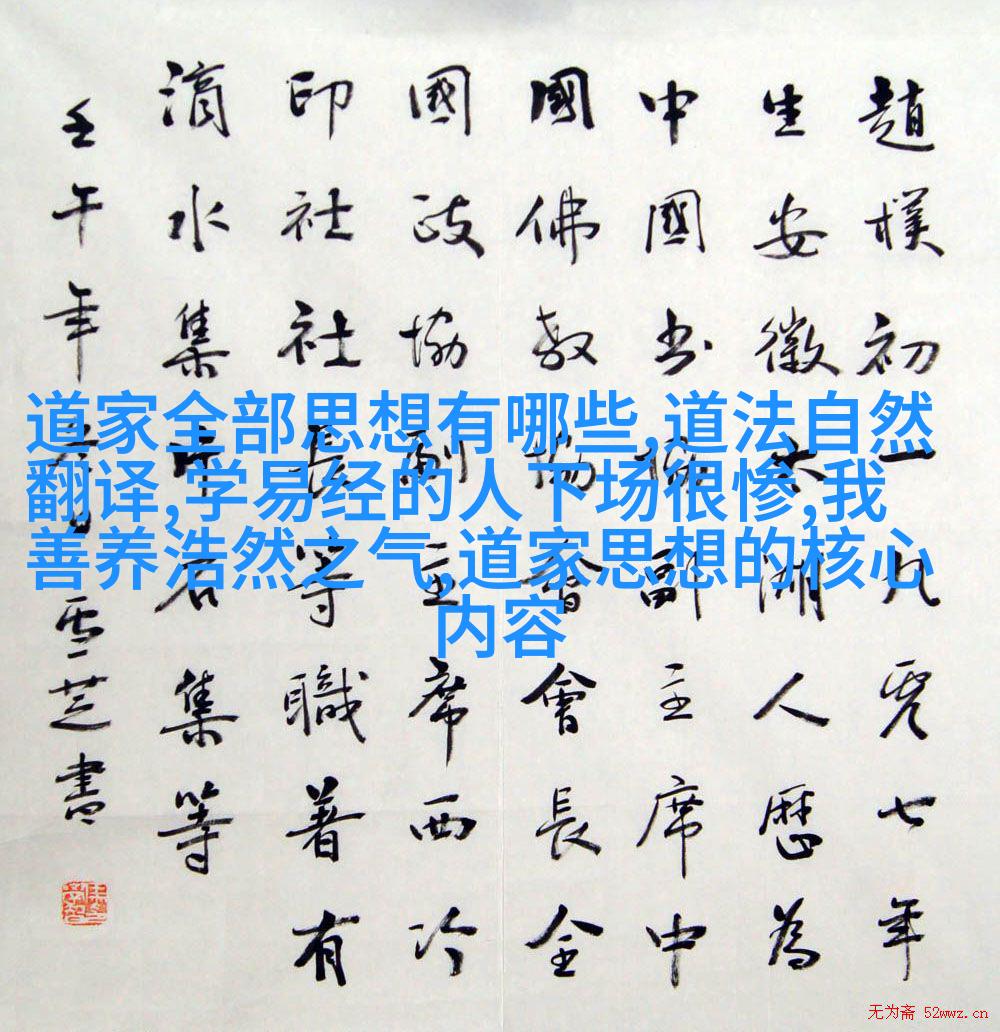 趙樸初一九零七年
生安徽太湖人歷為
中國书協副主席中
國佛教協會會長全
國政協副主席西冷
印社社長等職著有
滴水集片石集等
壬午年雪芝書
道家全部思想有哪些,道法自然
翻译,学易经的人下场很惨,我
善养浩然之气,道家思想的核心
内容
无为斋 52wwz.cn